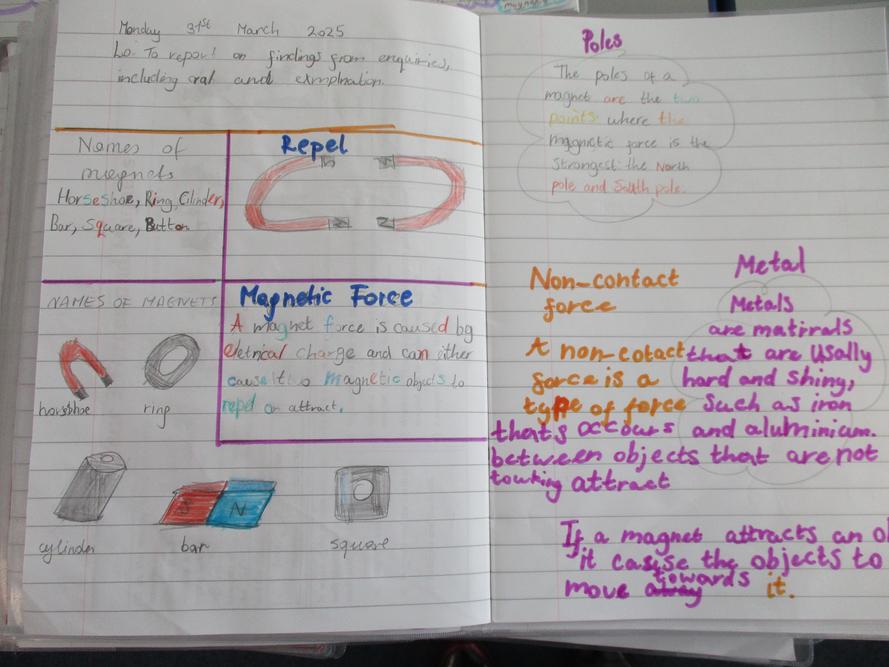 Monday 31st March 2025
Lo. To report on findings from enquiries,
including oral and
Names of
magnets
Horseshoe, Ring, Cilinder,
Bar, Square, Button
Repel
NAMES OF MAGNETS
horseshoe
ring
cylinder
S N
bar
square
Magnetic Force
A magnet force is caused by
eletrical charge and can either
cause two magnetic objects to
repel or attract.
Poles
The poles of a
magnet are the two
points where the
magnetic force is the
strongest: the North
pole and South pole.
Non-contact
force
A non-cotact
force is a
type of force
thats accours
between objects that are not
attract
Metal
Metals
are matirals
that are Usally
hard and shiny,
Such as iron
and aluminium.
If a magnet attracts an
it the objects to
move towards it.